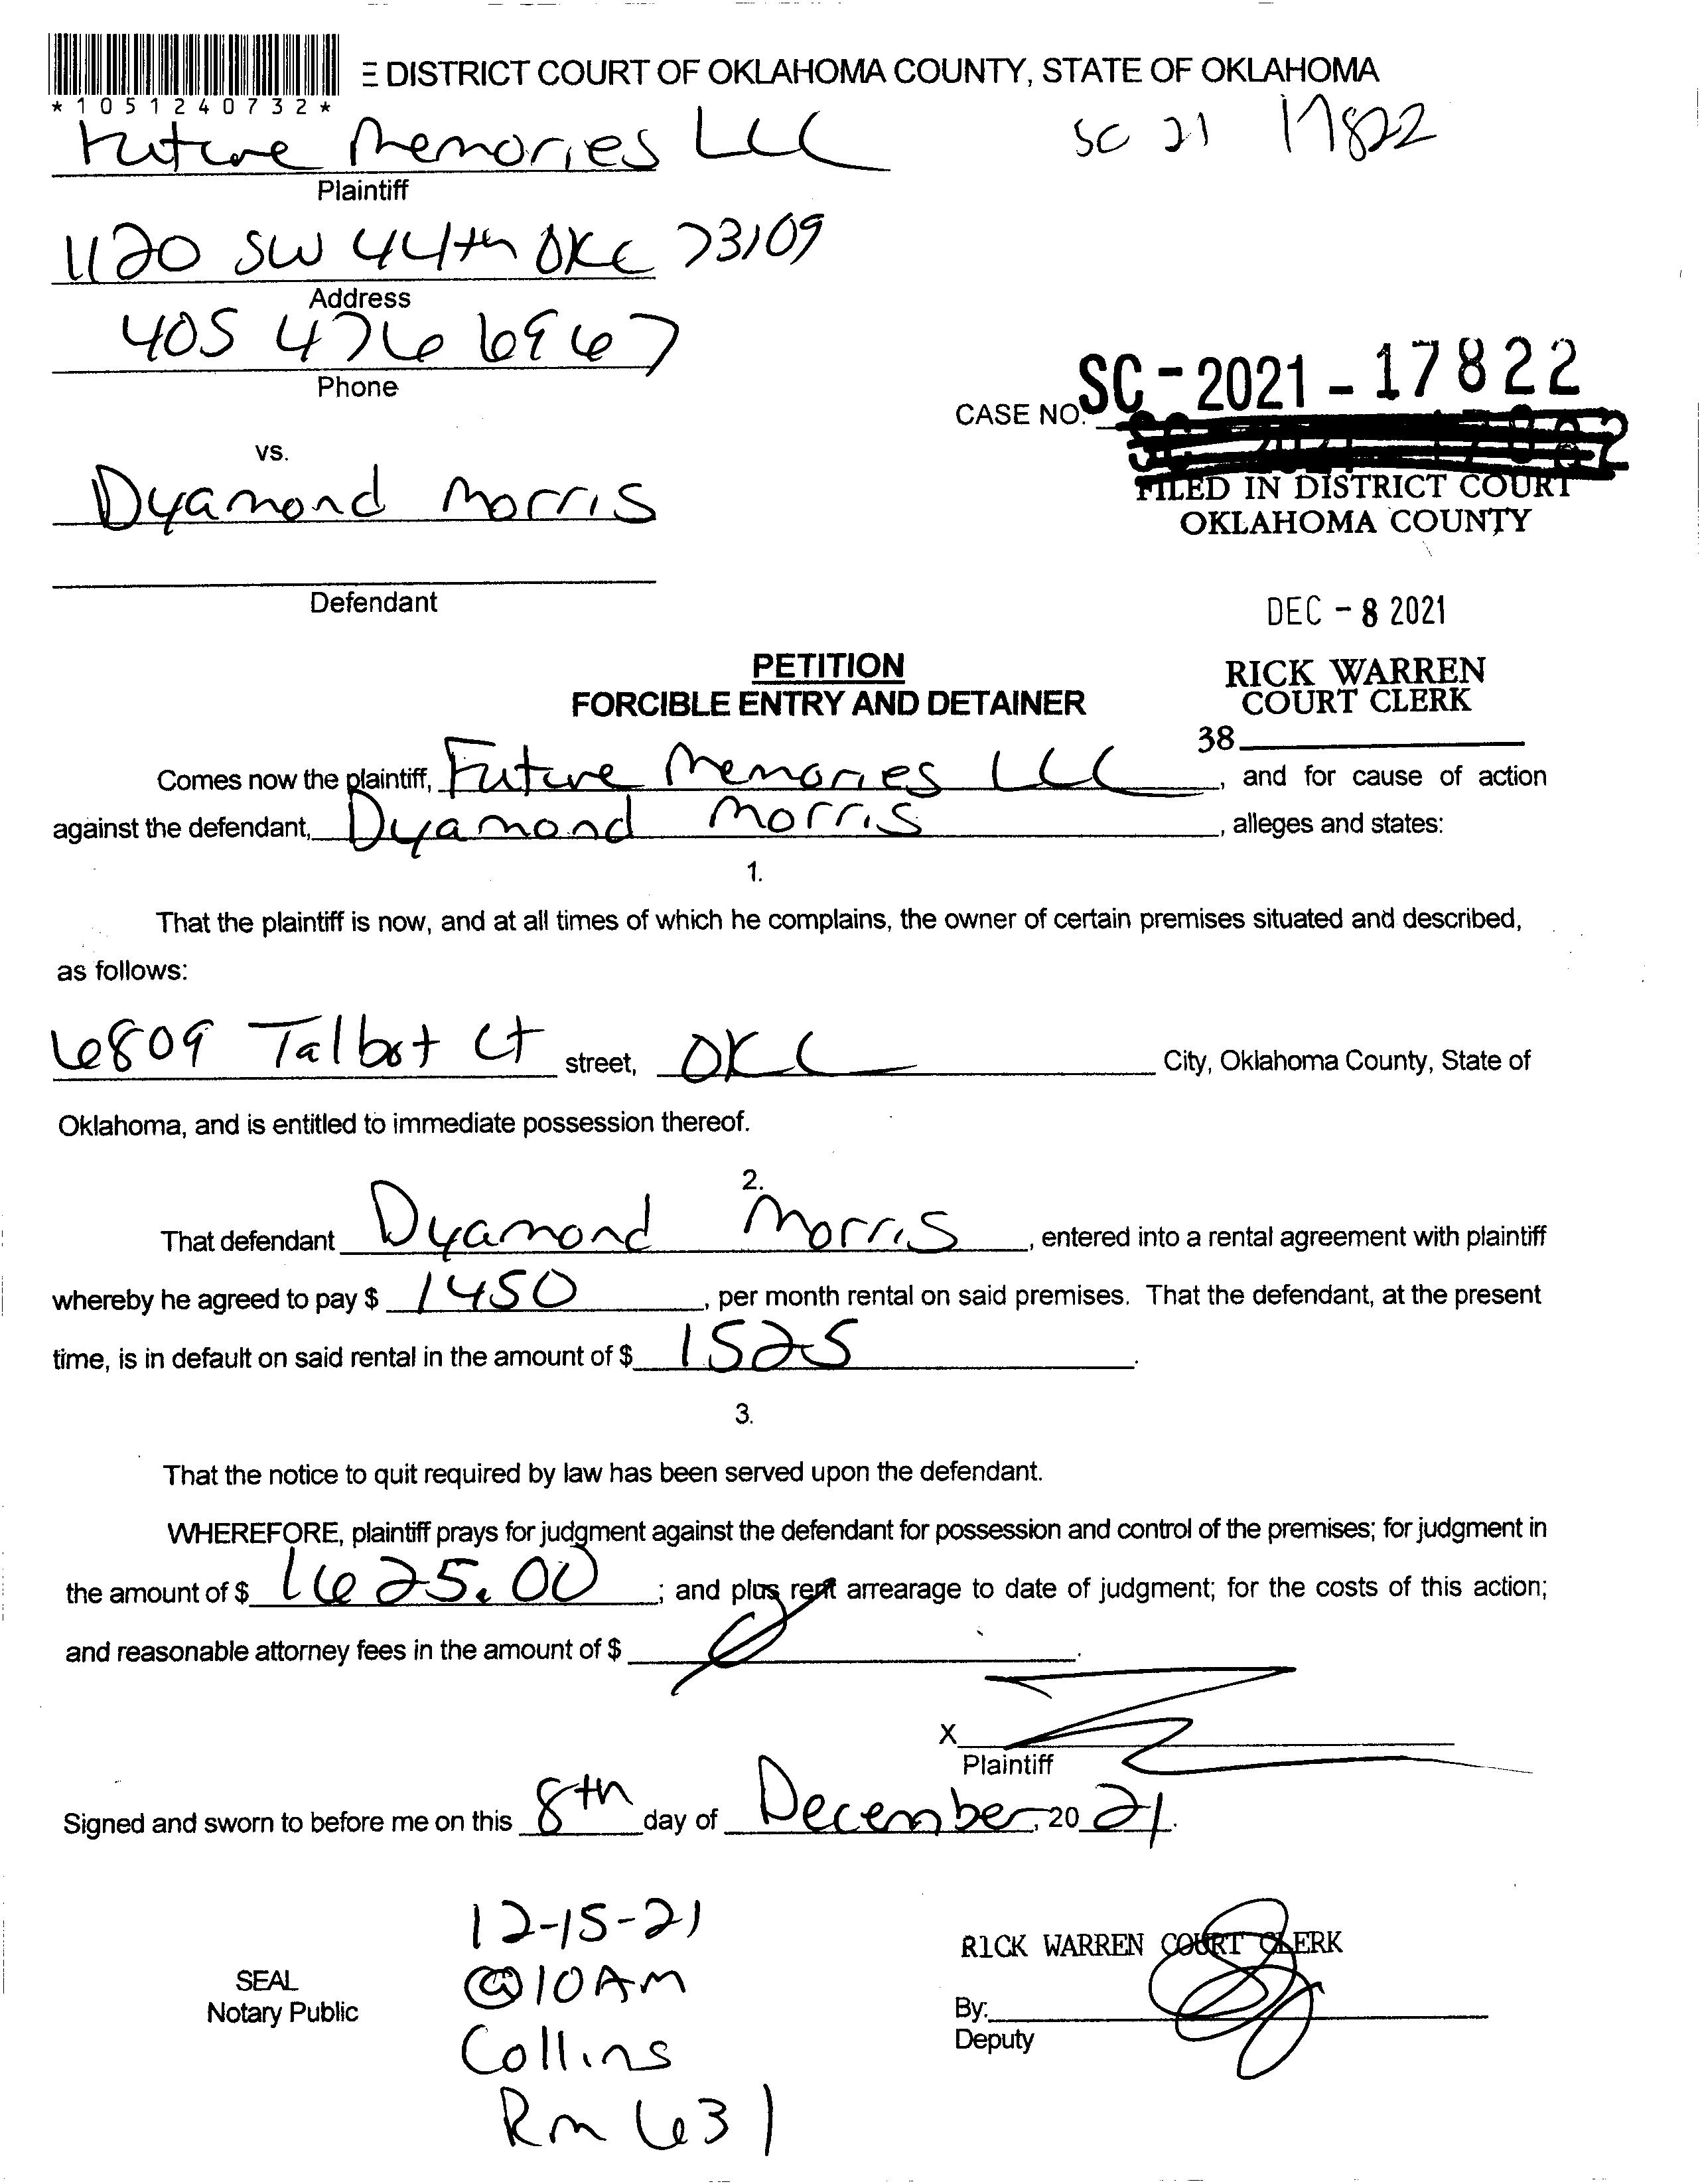 E DISTRICT COURT OF OKLAHOMA COUNTY, STATE OF OKLAHOMA
*1051240732*
Future Memories LLC
SC 21 17822
Plaintiff
1120 SW 44th OKC 73109
Address
405 476 6967
Phone
SC-2021-17822
CASE NO.
vs.
Dyamond Morris
FILED IN DISTRICT COURT
OKLAHOMA COUNTY
Defendant
DEC - 8 2021
PETITION
FORCIBLE ENTRY AND DETAINER
RICK WARREN
COURT CLERK
38
Comes now the plaintiff, Future Memories LLC, and for cause of action
against the defendant, Dyamond Morris, alleges and states:
1.
That the plaintiff is now, and at all times of which he complains, the owner of certain premises situated and described,
as follows:
6809 Talbot Ct street, OKC City, Oklahoma County, State of
Oklahoma, and is entitled to immediate possession thereof.
2.
That defendant Dyamond Morris, entered into a rental agreement with plaintiff
whereby he agreed to pay $ 1450, per month rental on said premises. That the defendant, at the present
time, is in default on said rental in the amount of $ 1525.
3.
That the notice to quit required by law has been served upon the defendant.
WHEREFORE, plaintiff prays for judgment against the defendant for possession and control of the premises; for judgment in
the amount of $ 1625.00; and plus rent arrearage to date of judgment; for the costs of this action;
and reasonable attorney fees in the amount of $ 0.
X
Plaintiff
Signed and sworn to before me on this 8th day of December, 20 21.
12-15-21
@10AM
Collins
Rm 631
SEAL
Notary Public
R1CK WARREN COURT CLERK
By:
Deputy